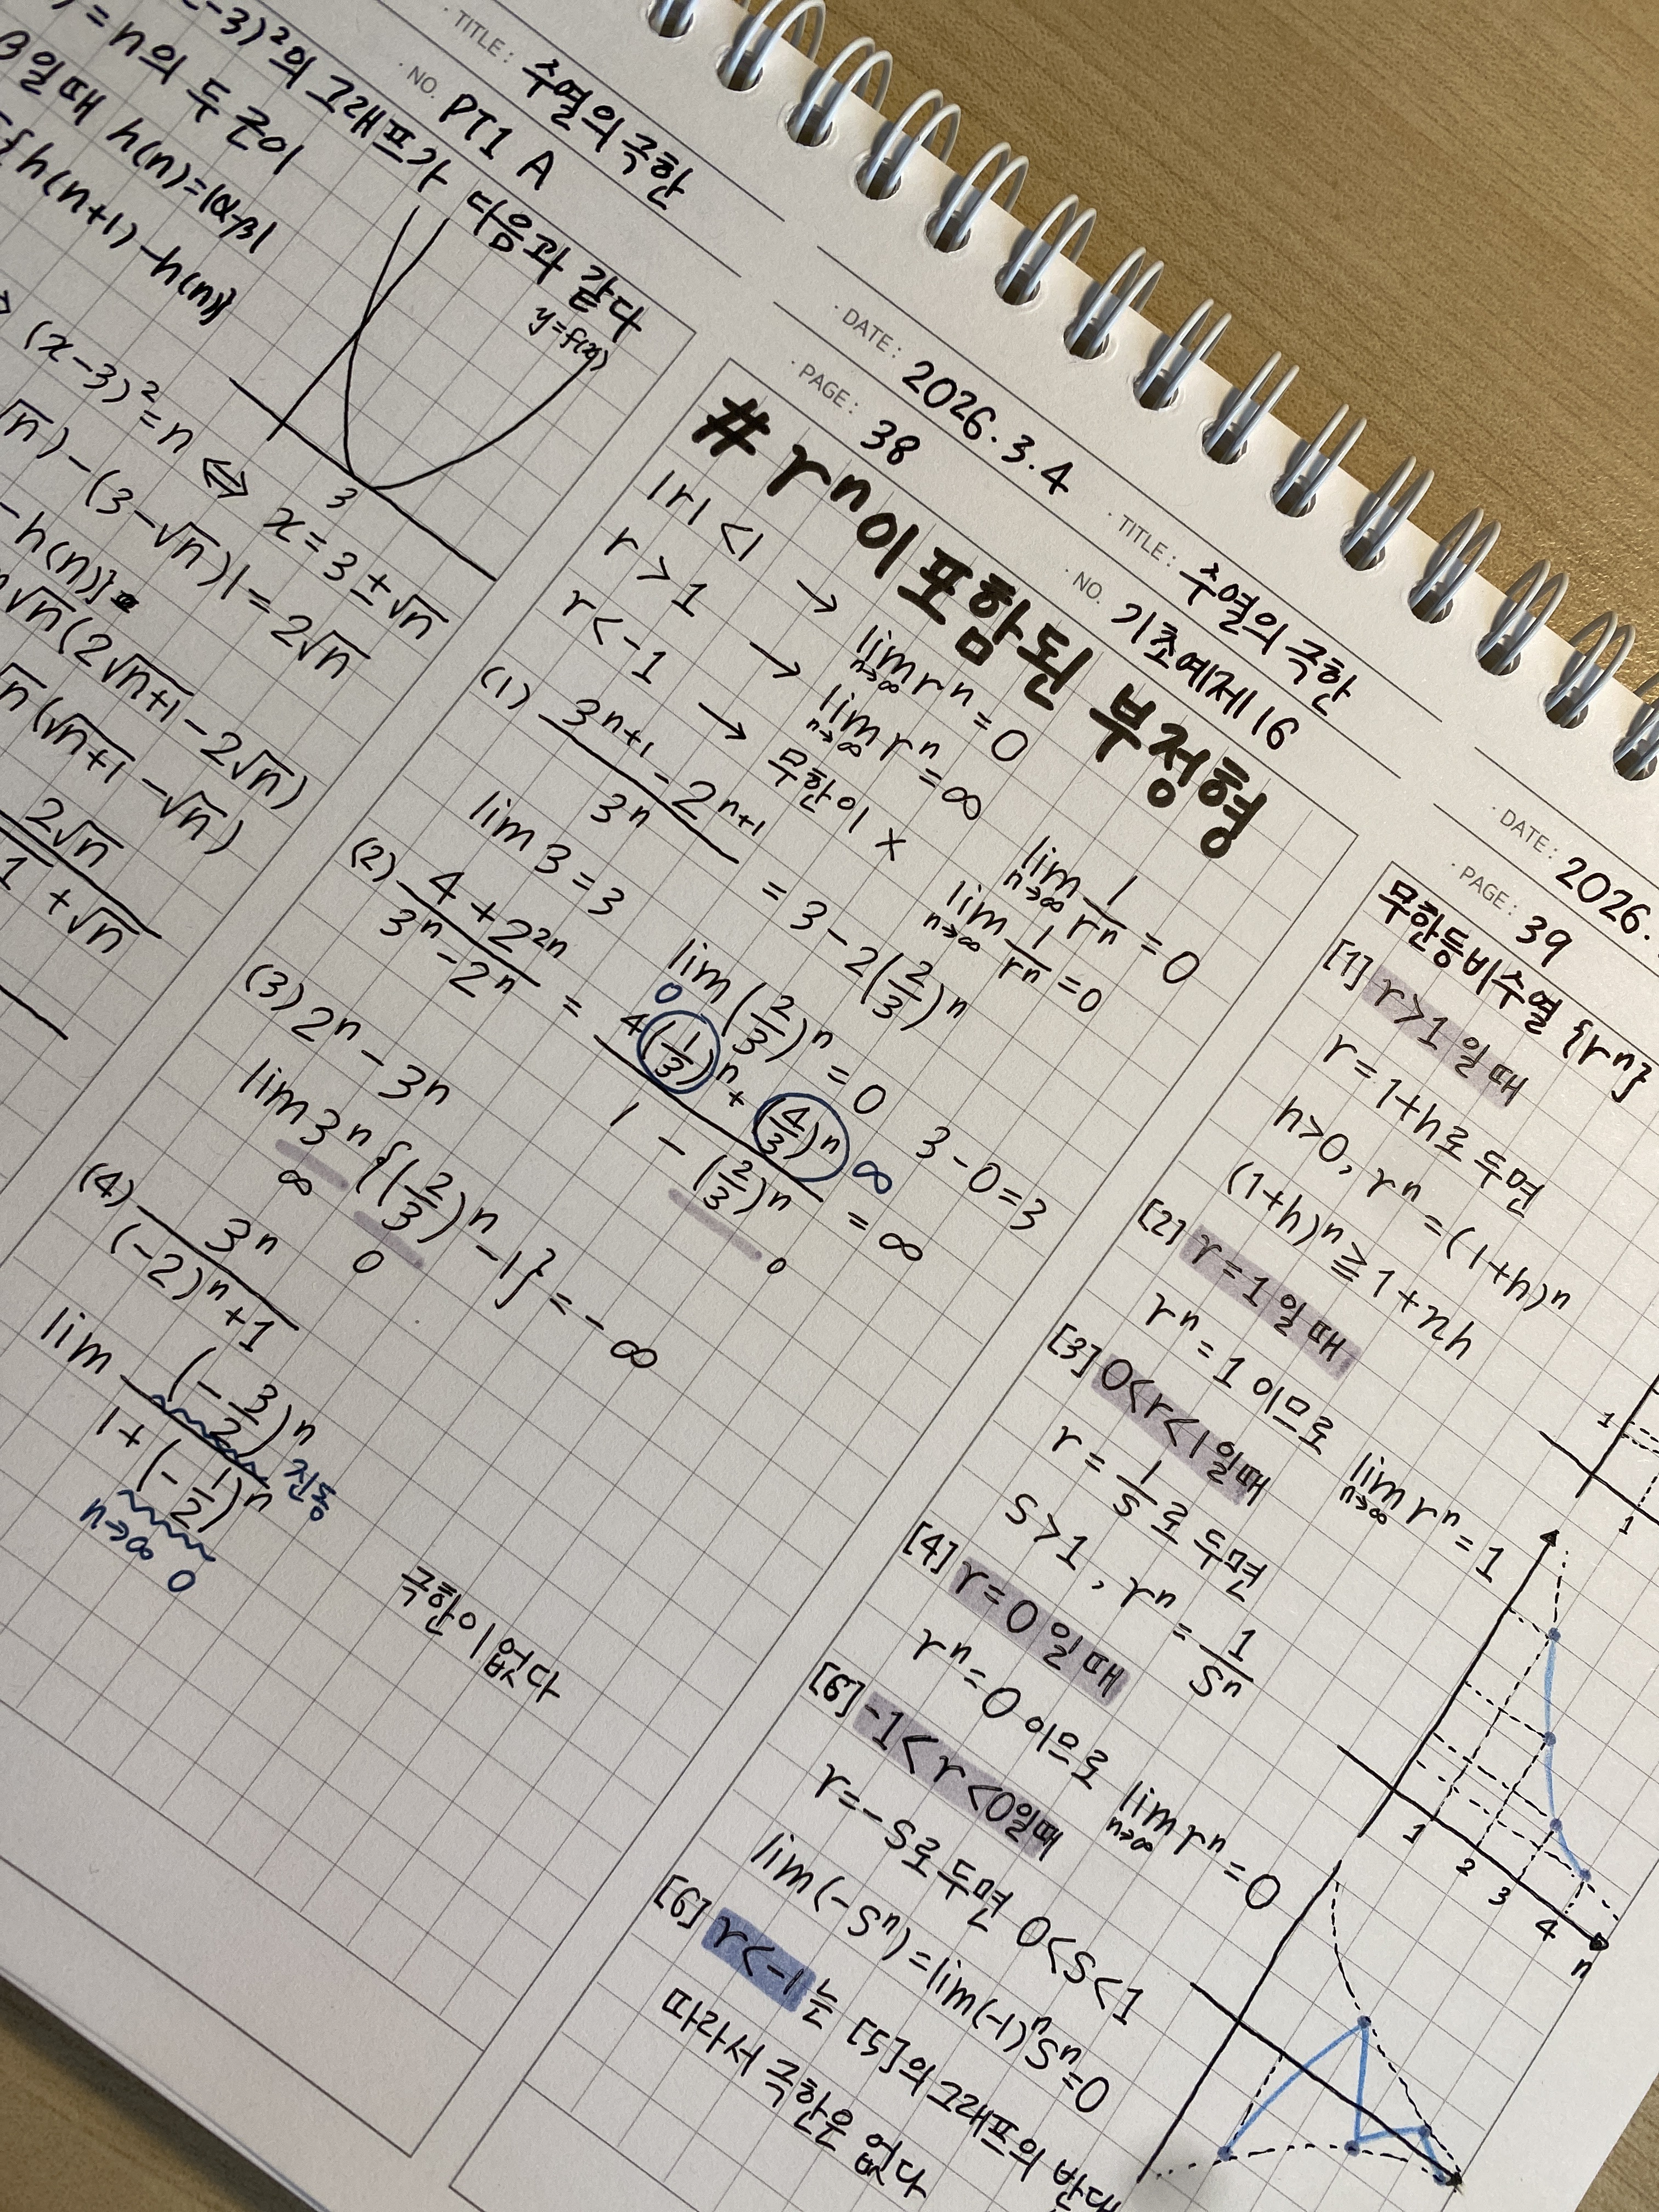 TITLE: 수열의 극한
NO. PT1 A
-3)²의 그래프가 다음과 같다
=n의 두 근이
β일 때 h(n)=|α-β|
{h(n+1)-h(n)}
y=f(x)
3
(x-3)²=n ⇔ x=3±√n
√n)-(3-√n)|=2√n
-h(n)}=
√n(2√n+1-2√n)
√n(√n+1-√n)
2√n
1+√n
DATE: 2026.3.4
TITLE: 수열의 극한
PAGE: 38
NO. 기초예제 16
# rⁿ이 포함된 부정형
|r|<1 → lim n→∞ rⁿ=0
r>1 → lim n→∞ rⁿ=∞ lim n→∞ 1/rⁿ=0
r<-1 → 무한이 × lim n→∞ 1/rⁿ=0
(1) 3ⁿ⁺¹-2ⁿ⁺¹ / 3ⁿ = 3-2(2/3)ⁿ
lim 3=3 lim(2/3)ⁿ=0 3-0=3
(2) 4+2²ⁿ / 3ⁿ-2ⁿ = 4(1/3)ⁿ+(4/3)ⁿ / 1-(2/3)ⁿ = ∞
0 ∞ 0
(3) 2ⁿ-3ⁿ
lim 3ⁿ{(2/3)ⁿ-1}=-∞
∞ 0
(4) 3ⁿ / (-2)ⁿ+1
lim (-3/2)ⁿ / 1+(-1/2)ⁿ
진동
n→∞ 0
극한이 없다
DATE: 2026.
PAGE: 39
무한등비수열 {rⁿ}
[1] r>1일 때
r=1+h로 두면
h>0, rⁿ=(1+h)ⁿ
(1+h)ⁿ≧1+nh
1
1
[2] r=1일 때
rⁿ=1 이므로 lim n→∞ rⁿ=1
[3] 0<r<1일때
r=1/s로 두면
s>1, rⁿ=1/sⁿ
1 2 3 4 n
[4] r=0일 때
rⁿ=0 이므로 lim n→∞ rⁿ=0
[5] -1<r<0일때
r=-s로 두면 0<s<1
lim(-sⁿ)=lim(-1)ⁿsⁿ=0
[6] r<-1는 [5]의 그래프의
따라서 극한은 없다